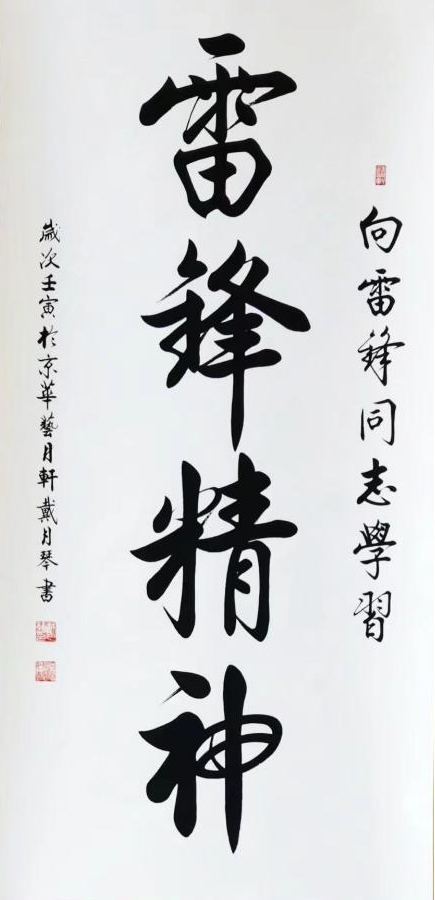 向雷鋒同志學習
雷鋒精神
歲次壬寅於京華藝月軒戴月琴書